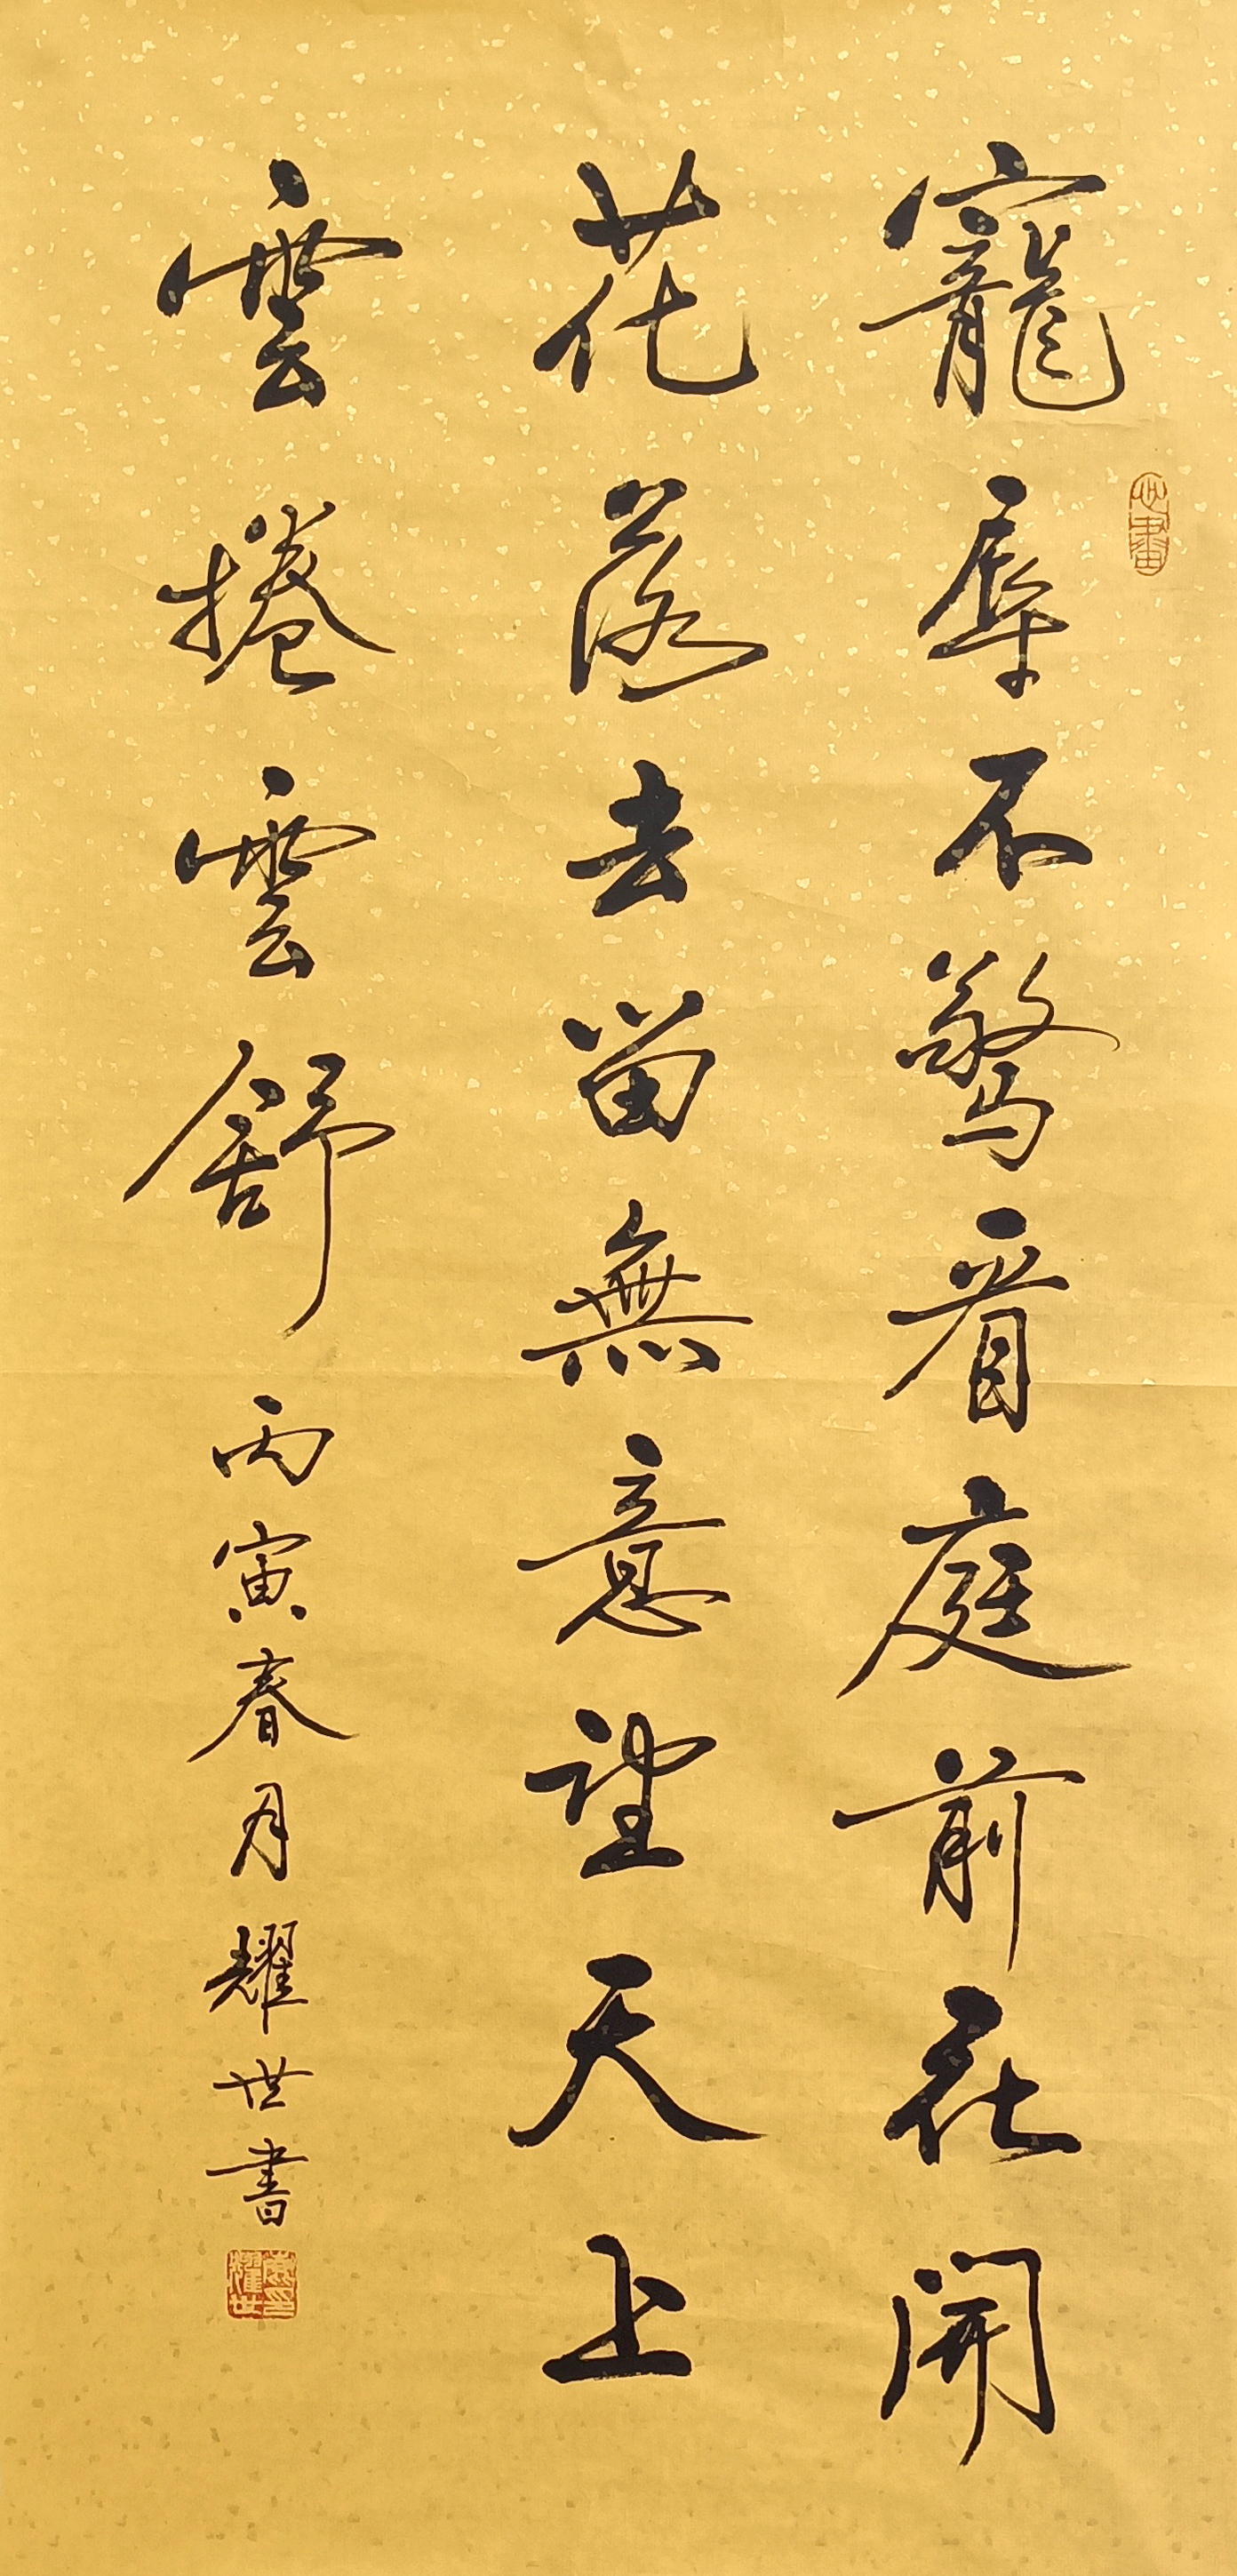 寵辱不驚看庭前花開
花落去留無意望天上
雲捲雲舒
丙寅春月耀世書